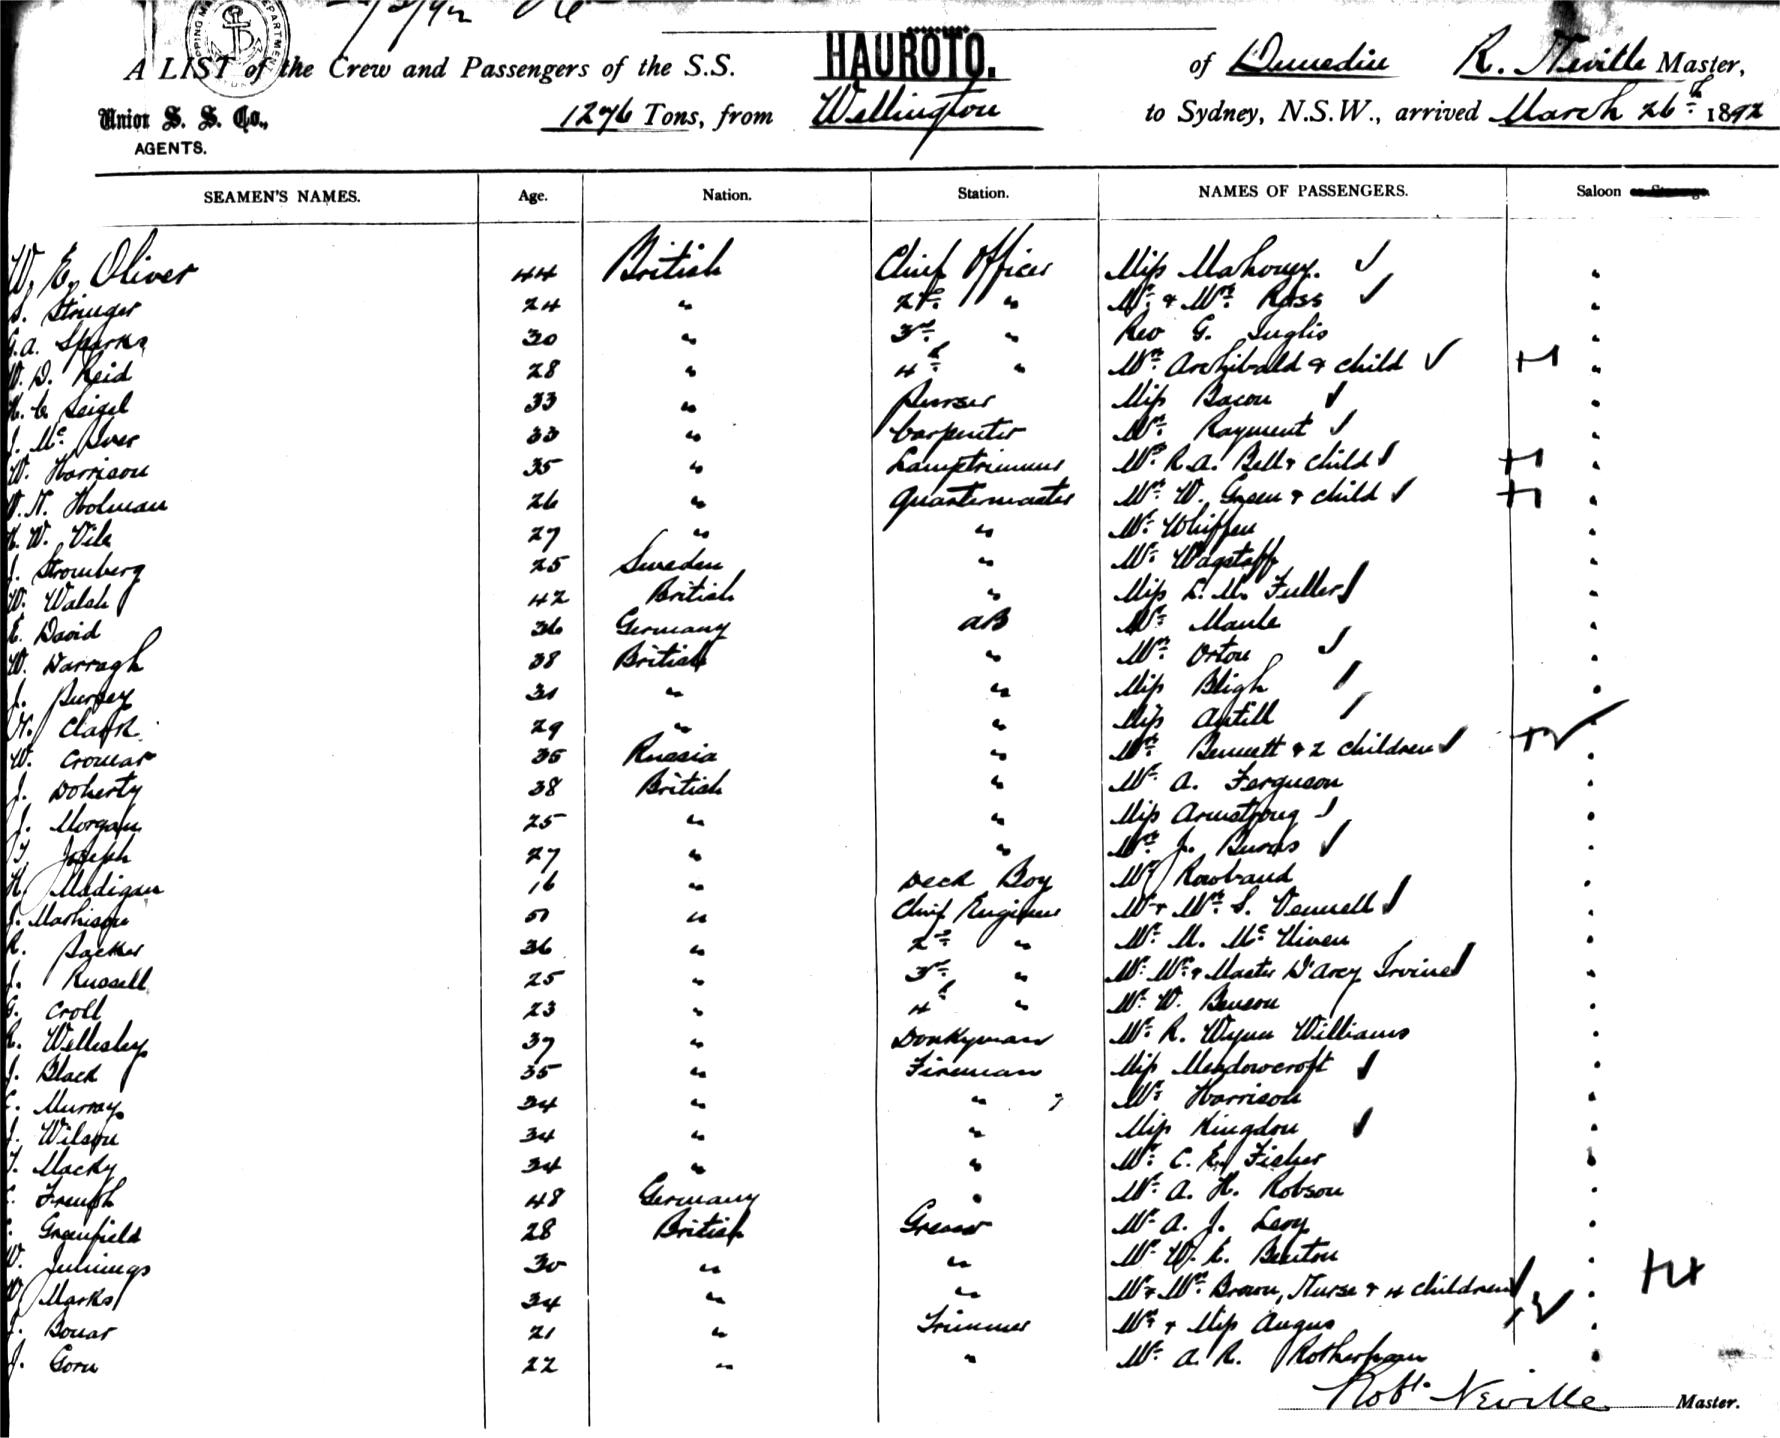 A LIST of the Crew and Passengers of the S.S. HAUROTO. of Dunedin R. Neville Master,
Union S. S. Co., 1276 Tons, from Wellington to Sydney, N.S.W., arrived March 26th 1892
AGENTS.
SEAMEN'S NAMES. Age. Nation. Station. NAMES OF PASSENGERS. Saloon
W. E. Oliver 44 British Chief Officer Miss Mahony.
S. Stringer 24 " 2nd " Mr. & Mrs. Ross
G.A. Sparks 30 " 3rd " Rev G. Inglis
W. D. Reid 28 " 4th " Mrs. Archibald & child
Seigel 33 " Purser Miss Bacon
J. Mc. Iver 33 " Carpenter Mrs. Rayment
W. Harrison 35 " Lamptrimmer Mrs. R.A. Bell & child
W. H. Holman 26 " Quartermaster Mrs. W. Green & child
W. Vile 27 " " Mr. Whiffen
J. Stromberg 25 Sweden " Mr. Wagstaff
W. Walsh 42 British " Miss L. M. Fuller
E. David 36 Germany AB Mr. Maule
W. Darragh 38 British " Mrs. Orton
J. Pursey 31 " " Miss Bligh
H. Clark 29 " " Miss Antill
W. Cromar 35 Russia " Mrs. Bennett & 2 children
J. Doherty 38 British " Mr. A. Ferguson
J. Morgan 25 " " Miss Armstrong
T. Joseph 27 " " Mrs. J. Burns
H. Madigan 16 " Deck Boy Mr Rowband
J. Mathison 51 " Chief Engineer Mr & Mrs. S. Vennell
R. Packer 36 " 2nd " Mr. M. Mc. Niven
J. Russell 25 " 3rd " Mr. Mrs. & Master D'Arcy Irvine
G. Croll 23 " 4th " Mr. W. Benson
R. Wellesley 37 " Donkyman Mr. R. Wynn Williams
J. Black 35 " Fireman Miss Meadowcroft
Murray 34 " " Mr. Harrison
J. Wilson 34 " " Miss Kingdon
T. Macky 34 " " Mr. C. E. Fisher
French 48 Germany " Mr. A. H. Robson
Greenfield 28 British Greaser Mr. A. J. Levy
W. Jennings 30 " " Mr. W. E. Benton
W Marks 34 " " Mr & Mrs. Brown, Nurse & 4 children
Bonar 21 " Trimmer Mrs. & Miss Angus
J. Gorn 22 " " Mr. A. R. Rotherham
Robt. Neville Master.